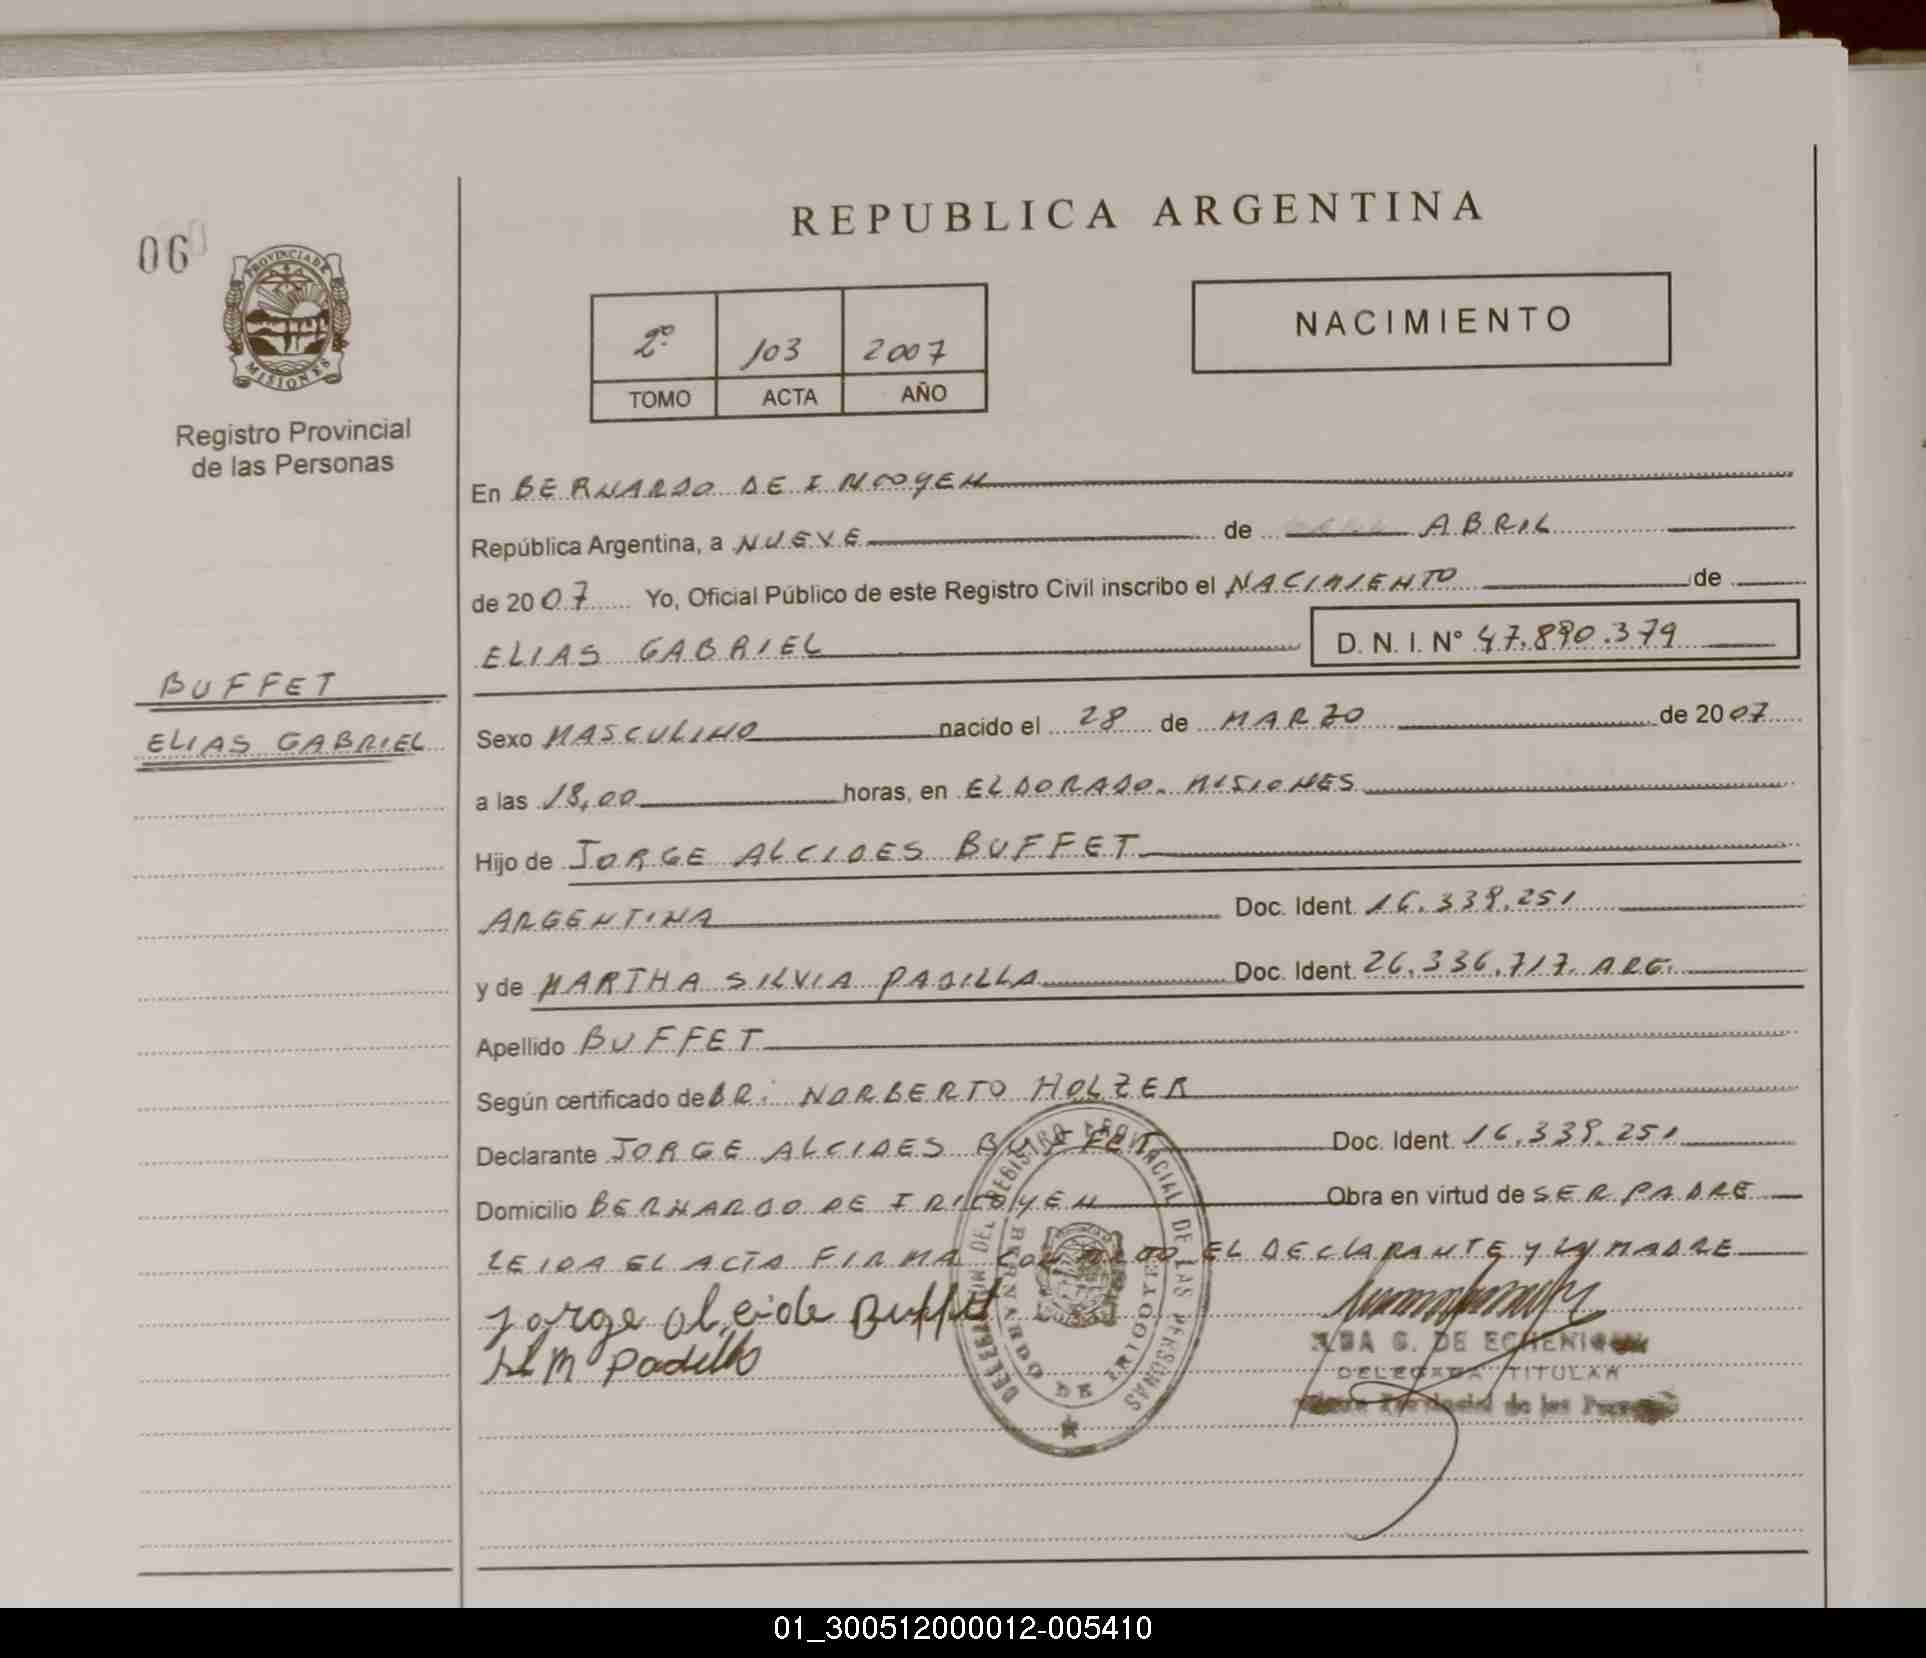 REPUBLICA ARGENTINA
06
PROVINCIA DE
MISIONES
Registro Provincial
de las Personas
2º 103 2007
TOMO ACTA AÑO
NACIMIENTO
En BERNARDO DE IRIGOYEN
República Argentina, a NUEVE de ABRIL
de 2007 Yo, Oficial Público de este Registro Civil inscribo el NACIMIENTO de
ELIAS GABRIEL D. N. I. Nº 47.890.379
BUFFET
ELIAS GABRIEL
Sexo MASCULINO nacido el 28 de MARZO de 2007
a las 18,00 horas, en ELDORADO. MISIONES
Hijo de JORGE ALCIDES BUFFET
ARGENTINA Doc. Ident. 16.339.251
y de MARTHA SILVIA PADILLA Doc. Ident. 26.336.717. ARG.
Apellido BUFFET
Según certificado de DR: NORBERTO HOLZER
Declarante JORGE ALCIDES BUFFET Doc. Ident. 16.339.251
Domicilio BERNARDO DE IRIGOYEN Obra en virtud de SER PADRE
LEIDA EL ACTA FIRMA CONMIGO EL DECLARANTE Y LA MADRE
Jorge Alcide Buffet
Padilla
DEL REGISTRO PROVINCIAL DE LAS PERSONAS
BERNARDO DE IRIGOYEN
G. DE ECHENIQUE
DELEGADA TITULAR
Provincial de las Personas
01_300512000012-005410